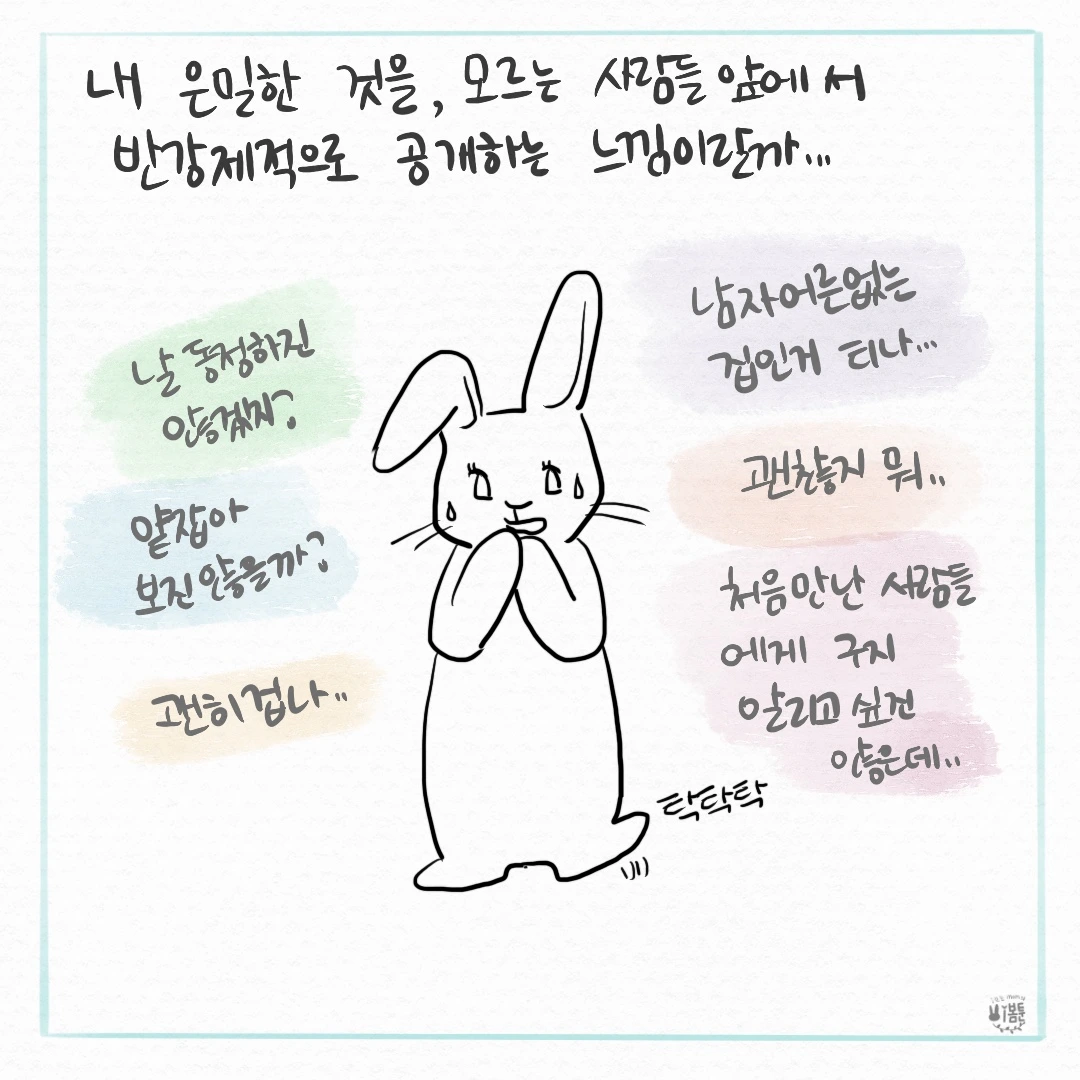 내 은밀한 것을, 모르는 사람들 앞에서
반강제적으로 공개하는 느낌이랄까...
날 동정하진
않겠지?
얕잡아
보진 않을까?
괜히 겁나..
남자어른없는
집인게 티나...
괜찮지 뭐..
처음만난 사람들
에게 구지
알리고 싶진
않은데..
탁탁탁